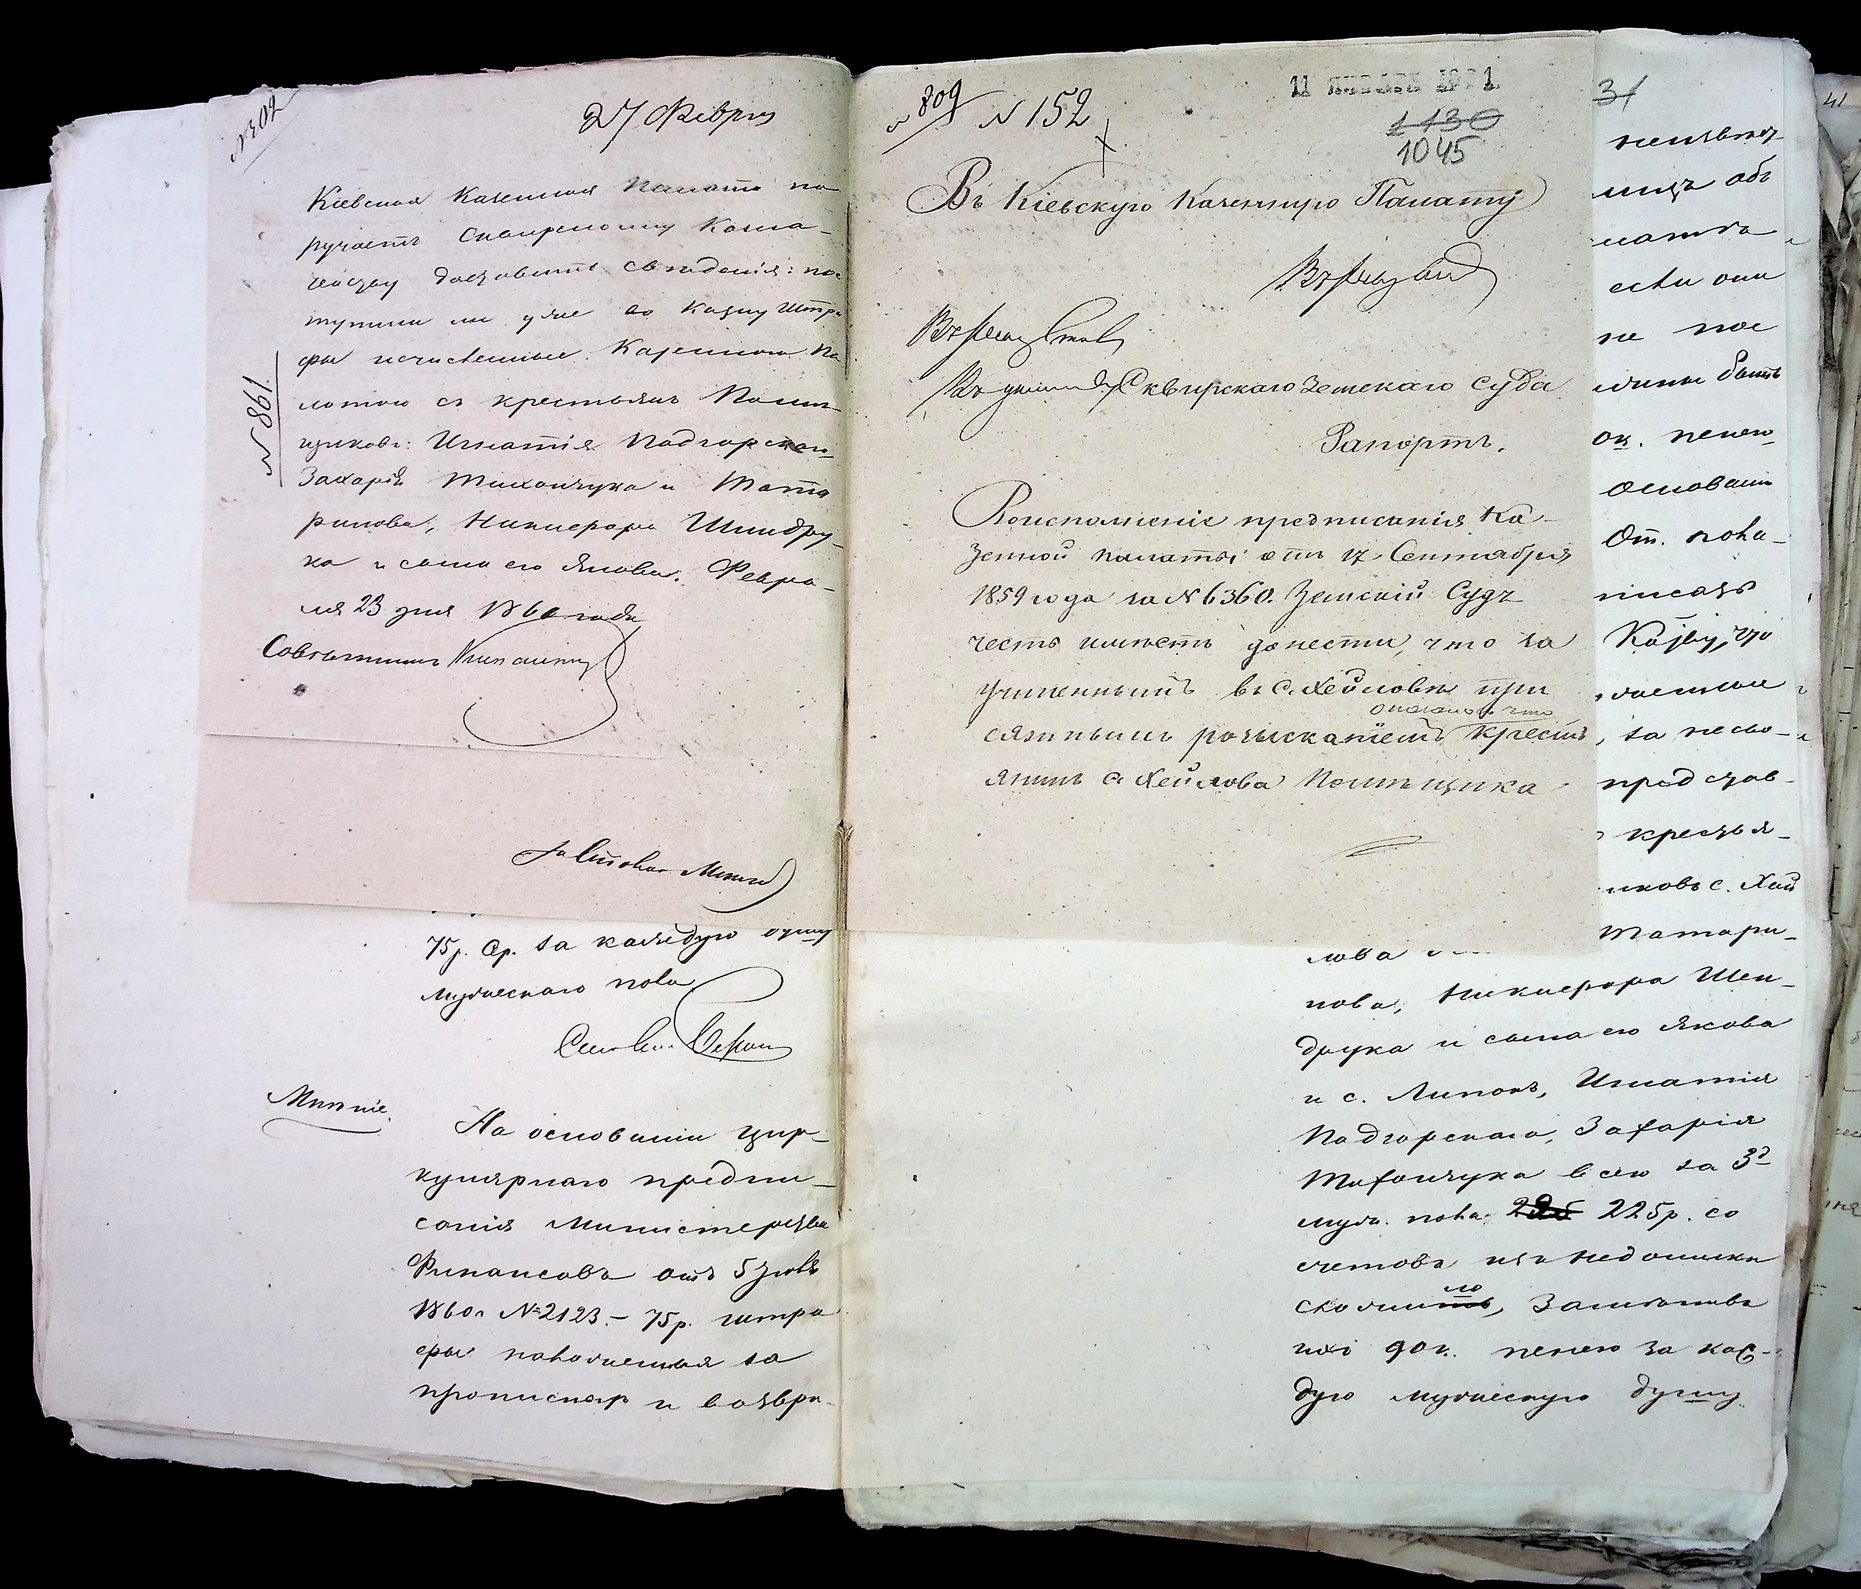 № 302
27 Февр
Кіевская Казенная Палата по
ручаетъ Сквирскому Казна-
чейству доставить сведенія: пос
тупили ли уже въ Казну штра
фы исчисленные Казенною Па
латою съ крестьянъ Помѣ-
щиковъ: Игнатія Подгорскаго
Захарія Тихончука и Тата
ринова, Никифора Шпидру-
ка и сына его Якова. Февра-
ля 23 дня 1861 года
№ 861.
Совѣтникъ
За Столонач
75 р. Ср. за каждую душу
мужескаго пола
Мнѣніе.
На основаніи цир-
кулярнаго предпи-
санія Министерства
Финансовъ отъ 5
1860 г. № 2123. - 75 р. штра
фы положенныя за
прописныхъ и возвра-
№ 809
№ 152
11 ЯНВАРЯ 1861
1130
1045
Въ Кіевскую Казенную Палату
Сквирскаго Земскаго Суда
Рапортъ.
Во исполненіе предписанія Ка-
зенной палаты отъ 17 Сентября
1859 года за № 6360. Земскій Судъ
честь имѣетъ донести, что за
учиненнымъ въ с. Хейловѣ при
оказалось что
сяжнымъ розысканіемъ крестъ
янинъ с. Хейлова Помѣщика
31
если они
не пос
лины быть
ок. пенею
основани
От. пола-
писать
Казну, что
, за несво-
представ-
крестья-
иковъ с. Хай
лова
Татари-
нова, Никифора Шен-
друка и сына его Якова
и с. Липокъ, Игнатія
Подгорскаго, Захарія
Тихончука всего за 3х
муж. пола 225 р. со
счетовъ изъ недоимки
сложило, Замѣнивъ
ихъ 90 к. пенею за каж-
дую мужескую душу
41